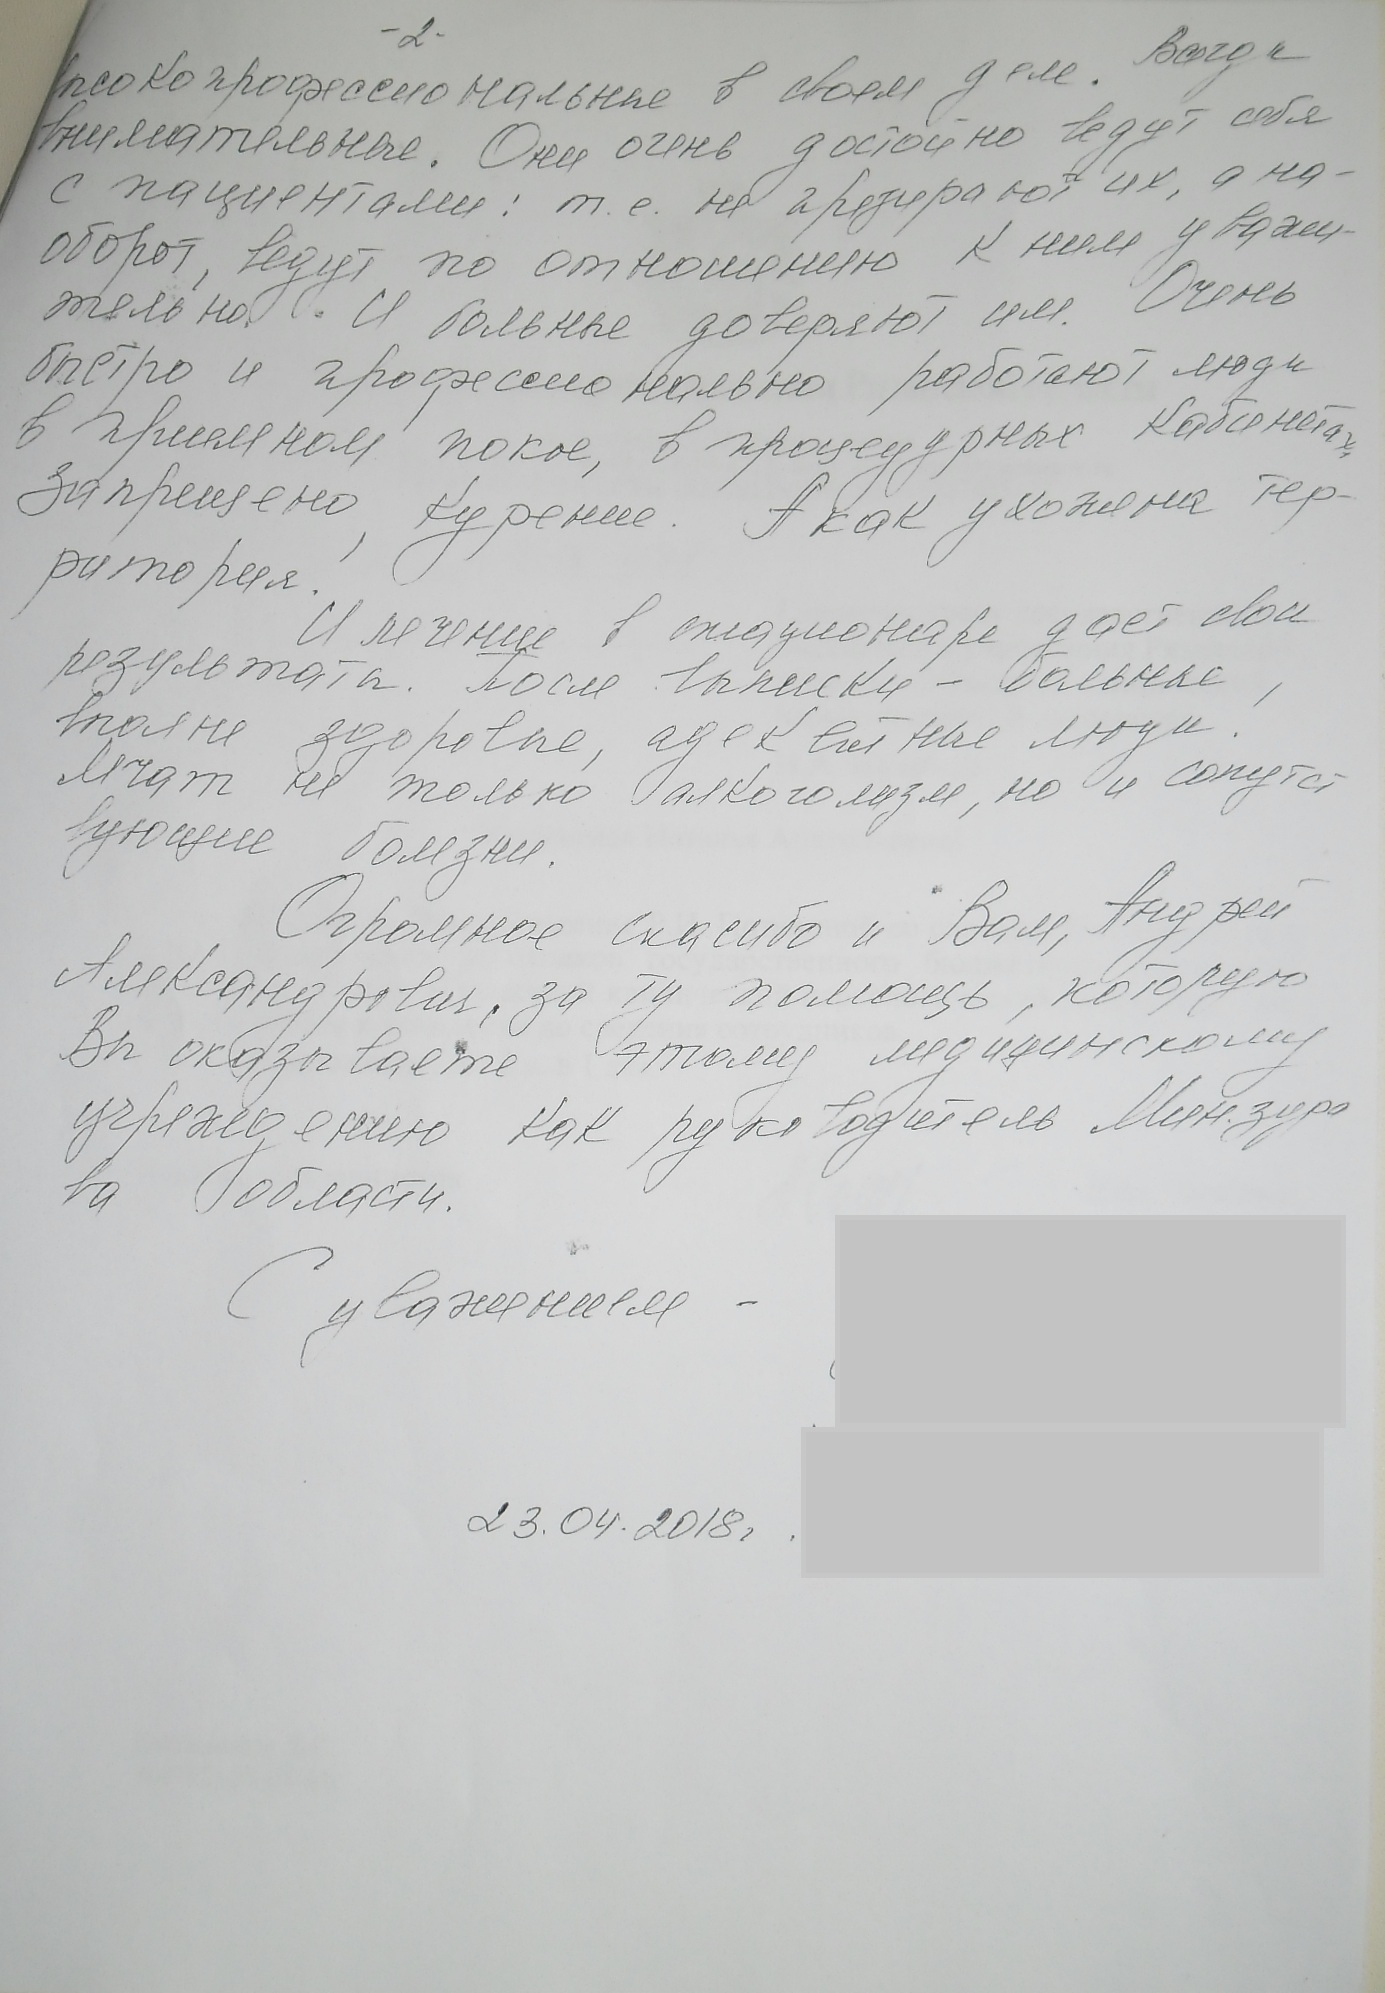 -2-
высокопрофессиональные в своем деле. Всегда
внимательные. Они очень достойно ведут себя
с пациентами: т.е. не презирают их, а на-
оборот, ведут по отношению к ним уважи-
тельно. И больные доверяют им. Очень
быстро и профессионально работают люди
в приемном покое, в процедурных кабинетах,
Запрещено, курение. А как ухожена тер-
ритория!
И лечение в стационаре дает свои
результаты. После выписки - больные,
вполне здоровые, адекватные люди.
Лечат не только алкоголизм, но и сопутст
вующие болезни.
Огромное спасибо и Вам, Андрей
Александрович, за ту помощь, которую
Вы оказываете этому медицинскому
учреждению как руководитель Минздра
ва области.
С уважением -
23.04.2018г.